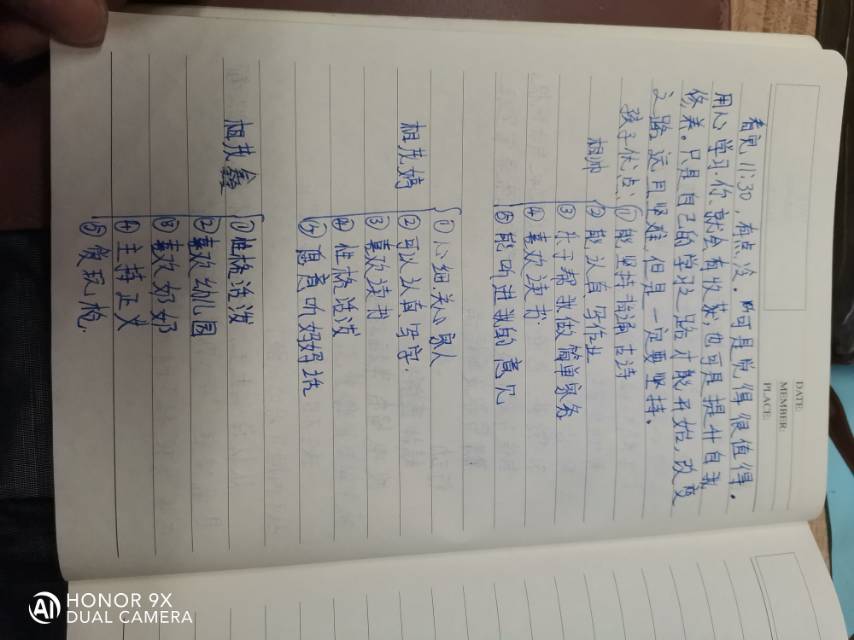 DATE:
MEMBER:
PLACE:
看完11:30，有点冷。即可是觉得很值得。
用心学习.你就会有收获,也可是提升自我
修养。只是自己的学习之路才能开始,改变
之路远且坚难但是一定要坚持。
孩子优点、①能坚持背诵古诗
相帅 ②能认真写作业
③乐于帮我做简单家务
④喜欢读书
⑤能听进我的意见
①心细.关心家人
相茂婷 ②可以认真写字.
③喜欢读书
④性格活泼
⑤愿意听妈妈话
相茂鑫 ①性格活泼
②喜欢幼儿园
③喜欢奶奶
④主持正义
⑤
AI HONOR 9X
DUAL CAMERA